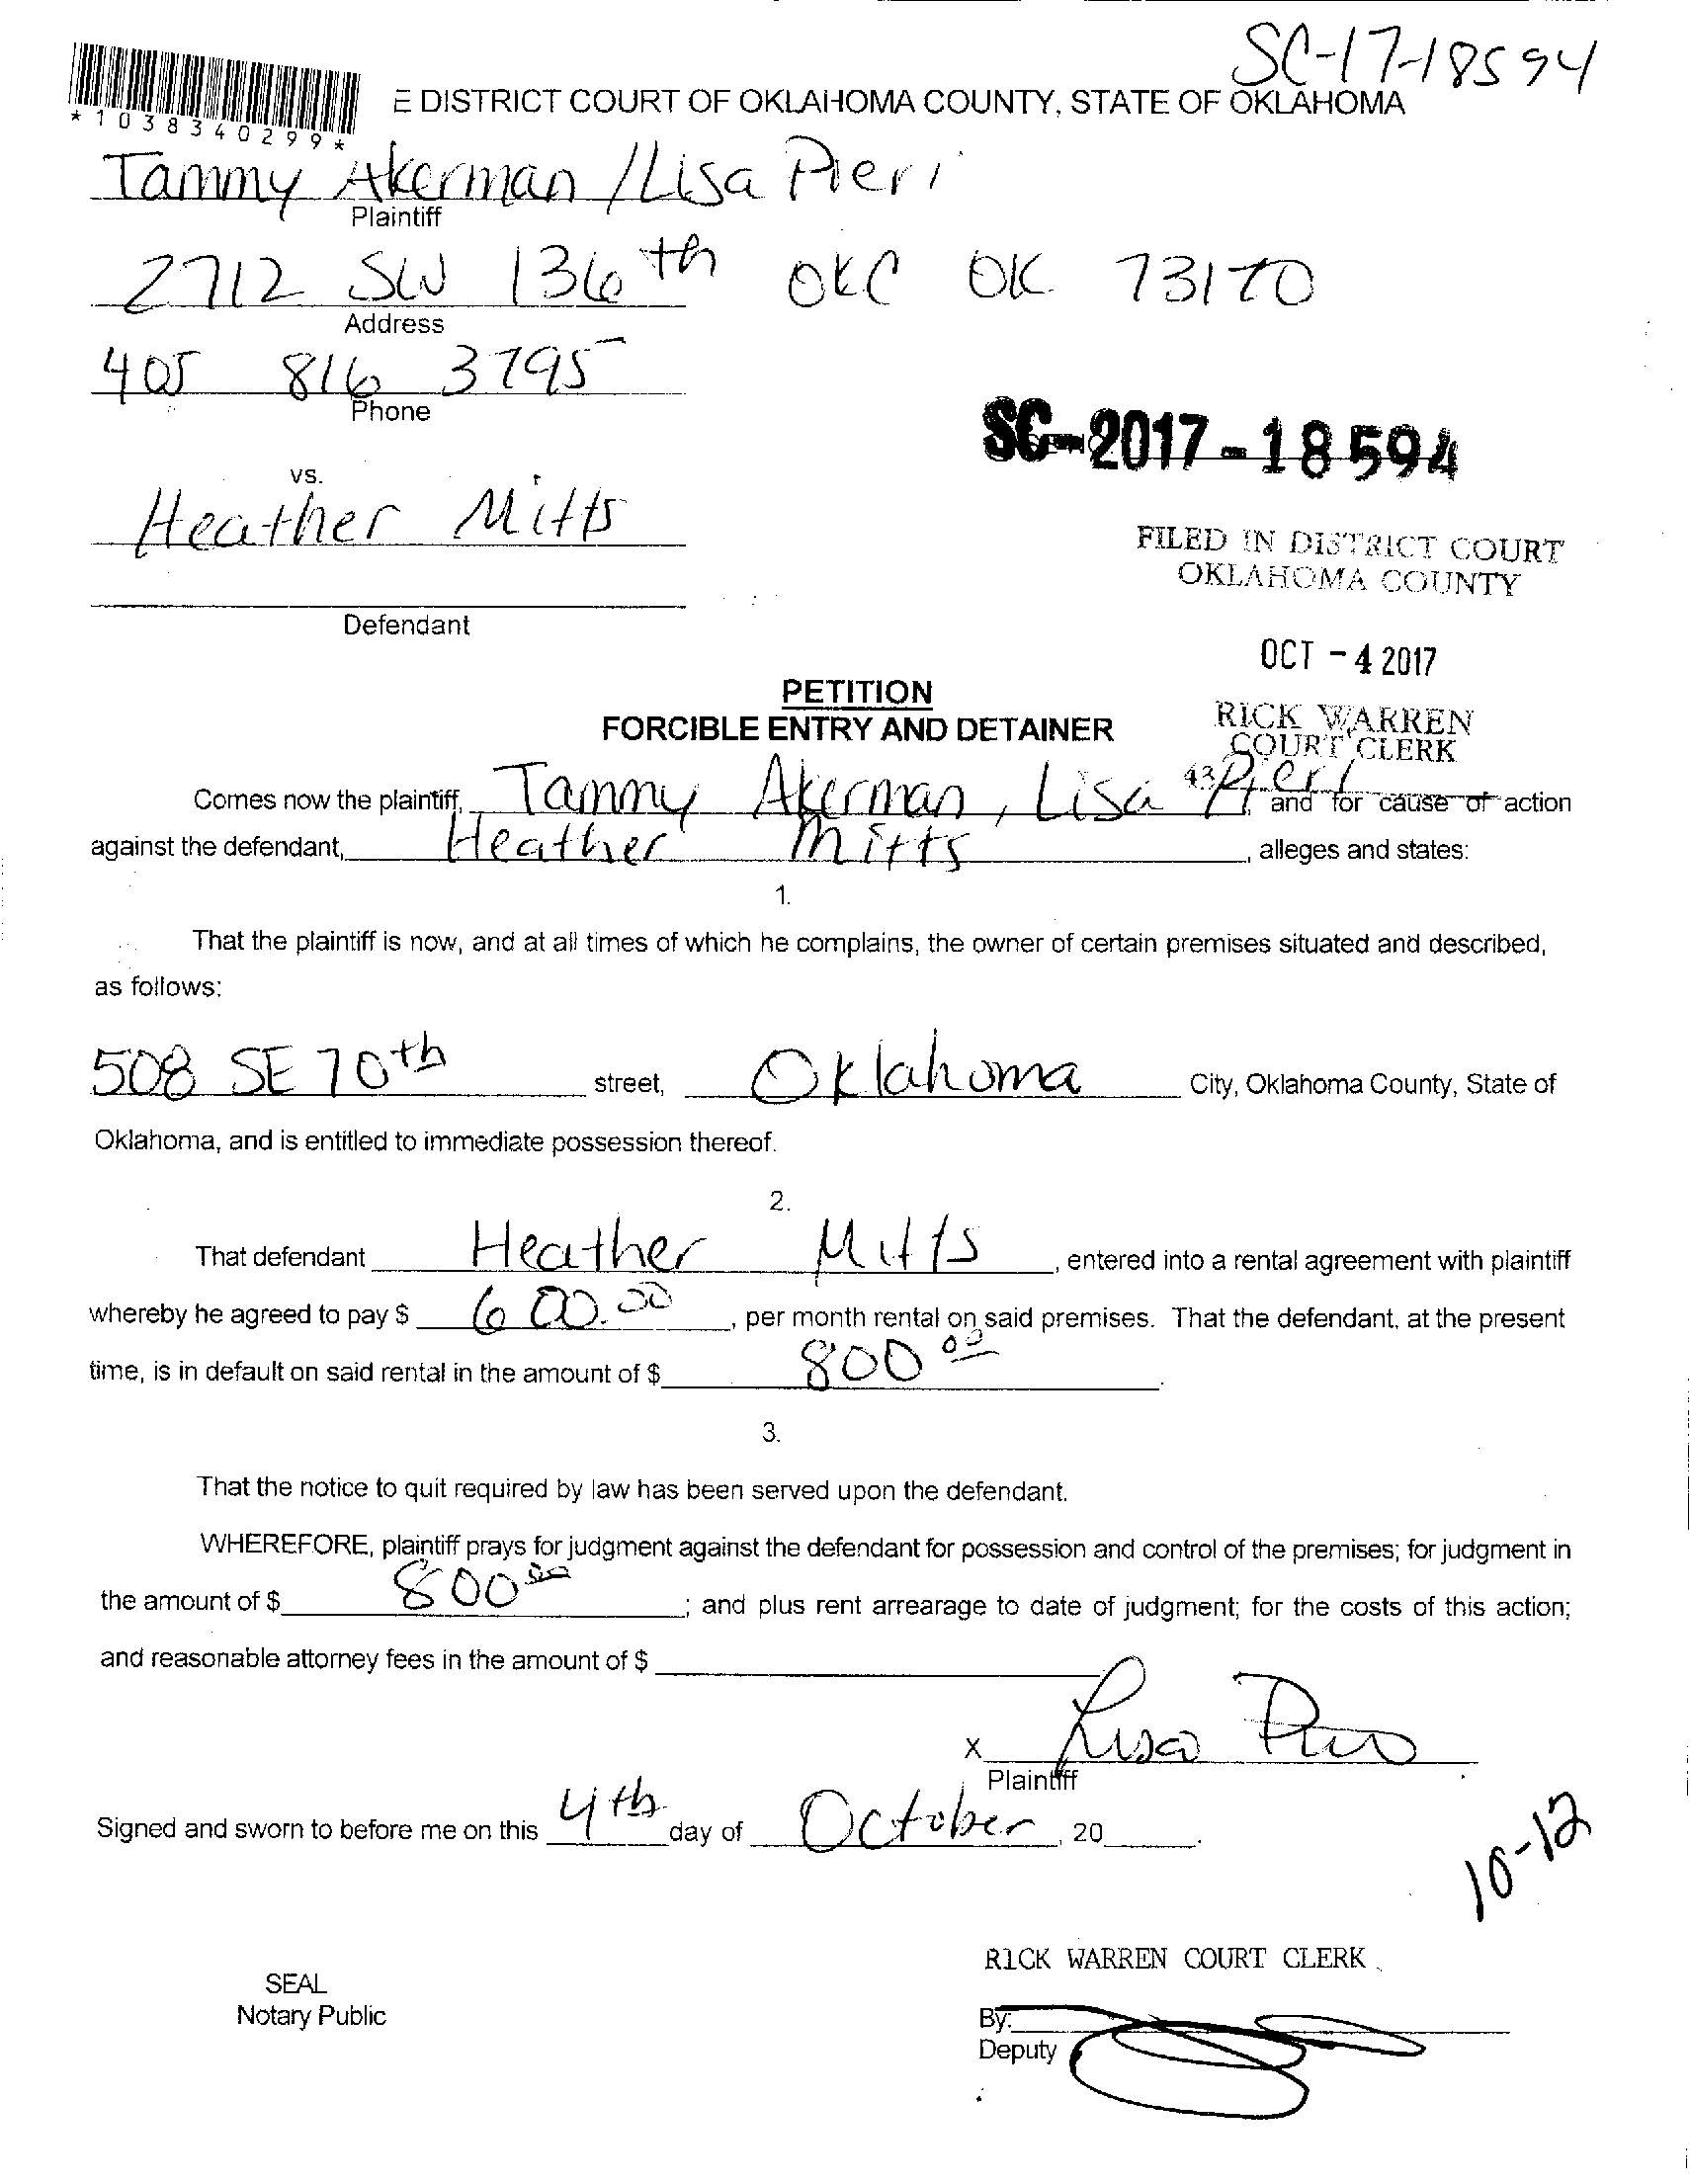 SC-17-18594
*1038340299*
E DISTRICT COURT OF OKLAHOMA COUNTY, STATE OF OKLAHOMA
Tammy Akerman / Lisa Pieri
Plaintiff
2712 SW 136th OKC OK 73170
Address
405 816 3795
Phone
SC-2017-18594
vs.
Heather Mitts
FILED IN DISTRICT COURT
OKLAHOMA COUNTY
Defendant
OCT - 4 2017
PETITION
FORCIBLE ENTRY AND DETAINER
RICK WARREN
COURT CLERK
43
Comes now the plaintiff, Tammy Akerman, Lisa Pieri, and for cause of action
against the defendant, Heather Mitts, alleges and states:
1.
That the plaintiff is now, and at all times of which he complains, the owner of certain premises situated and described,
as follows:
508 SE 70th street, Oklahoma City, Oklahoma County, State of
Oklahoma, and is entitled to immediate possession thereof.
2.
That defendant Heather Mitts, entered into a rental agreement with plaintiff
whereby he agreed to pay $ 600.00, per month rental on said premises. That the defendant, at the present
time, is in default on said rental in the amount of $ 800 00.
3.
That the notice to quit required by law has been served upon the defendant.
WHEREFORE, plaintiff prays for judgment against the defendant for possession and control of the premises; for judgment in
the amount of $ 800 00; and plus rent arrearage to date of judgment; for the costs of this action;
and reasonable attorney fees in the amount of $
X Lisa Pieri
Plaintiff
Signed and sworn to before me on this 4th day of October, 20.
10-12
RICK WARREN COURT CLERK
SEAL
Notary Public
By:
Deputy